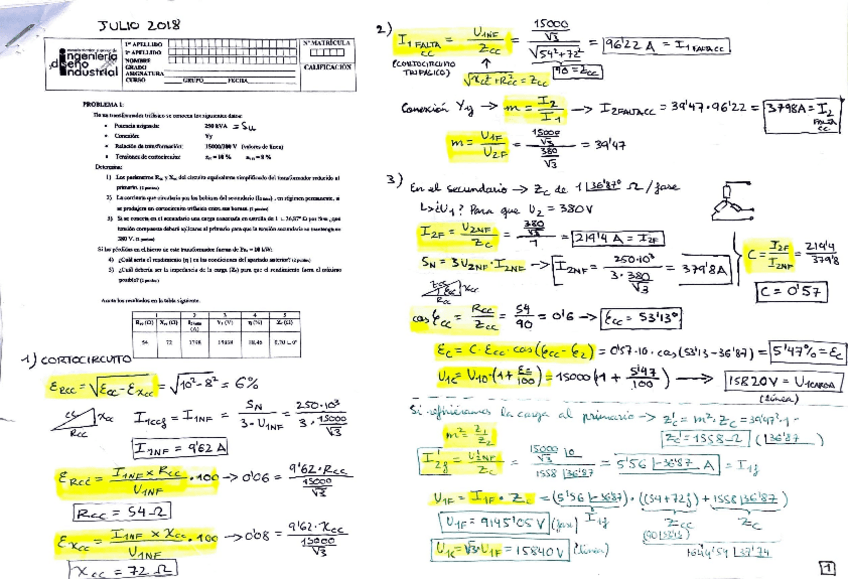 JULIO 2018
ingeniería
diseño
industrial
1º APELLIDO
2º APELLIDO
NOMBRE
GRADO
ASIGNATURA
CURSO GRUPO FECHA
Nº MATRÍCULA
CALIFICACIÓN
PROBLEMA 1:
De un transformador trifásico se conocen los siguientes datos:
• Potencia asignada: 250 kVA = Su
• Conexión: Yy
• Relación de transformación: 15000/380 V (valores de línea)
• Tensiones de cortocircuito: εcc = 10 % εxcc = 8 %
Determina:
1) Los parámetros Rcc y Xcc del circuito equivalente simplificado del transformador reducido al
primario.
2) La corriente que circularía por las bobinas del secundario, en régimen permanente, si
se produjera un cortocircuito trifásico
3) Si se conecta en el secundario una carga conectada en estrella de 1 ∟36,87º Ω por fase, ¿qué
tensión compuesta deberá aplicarse al primario para que la tensión secundaria se mantenga en
380 V.
Si las pérdidas en el hierro de este transformador fueran de = 10 kW:
4) ¿Cuál sería el rendimiento (η) en las condiciones del apartado anterior?
5) ¿Cuál debería ser la impedancia de la carga (Zc) para que el rendimiento fuera el máximo
posible?
Anota los resultados en la tabla siguiente.
1 2 3 4 5
Rcc (Ω) Xcc (Ω) (A) V1 (V) η (%) Zc (Ω)
54 72
1) CORTOCIRCUITO
ERcc = √Ecc - Excc = √10² - 8² = 6%
cc Xcc Rcc
I1ccf = I1NF = SN / 3·U1NF = 250·10³ / 3·15000/√3
I1NF = 9'62 A
ERcc = I1NF × Rcc / U1NF · 100 → 0'06 = 9'62·Rcc / 15000/√3
Rcc = 54 Ω
EXcc = I1NF × Xcc / U1NF · 100 → 0'08 = 9'62·Xcc / 15000/√3
Xcc = 72 Ω
2) I1 FALTA CC = U1NF / Zcc = 15000/√3 / √54²+72² = 96'22 A = I1 FALTA CC
(CORTOCIRCUITO TRIFÁSICO)
√Xcc²+Rcc² = Zcc
90 = Zcc
Conexión Yy → m = I2 / I1 → I2FALTACC = 39'47·96'22 = 3798A = I2 FALTA CC
m = U1F / U2F = 15000/√3 / 380/√3 = 39'47
3) En el secundario → Zc de 1|36'87º Ω/fase
↳ ¿U1? Para que U2 = 380V
I2F = U2NF / Zc = 380/√3 / 1 = 219'4 A = I2F
SN = 3U2NF·I2NF → I2NF = 250·10³ / 3·380/√3 = 379'8A
C = I2F / I2NF = 219'4 / 379'8
C = 0'57
cos φcc = Rcc / Zcc = 54 / 90 = 0'6 → φcc = 53'13º
Ec = C·Ecc·cos(φcc - φ2) = 0'57·10·cos(53'13 - 36'87) = 5'47% = Ec
U1c = U10·(1 + Ec/100) = 15000(1 + 5'47/100) → 15820V = U1CARGA
(Línea)
Si refiriéramos la carga al primario → Z'c = m²·Zc = 39'47²·1
m² = Z1 / Z2
Z'c = 1558 Ω (|36'87)
I'2f = U1NF / Zc = 15000/√3 |0 / 1558 |36'87 = 5'56 |-36'87 A = I1f
U1F = I1F · Zc = (5'56 |-36'87)·((54+72j) + 1558|36'87)
I1f Zcc Zc
U1F = 9145'05 V (fase)
U1c = √3·U1F = 15840V (línea)
1644'59 |37'74
1